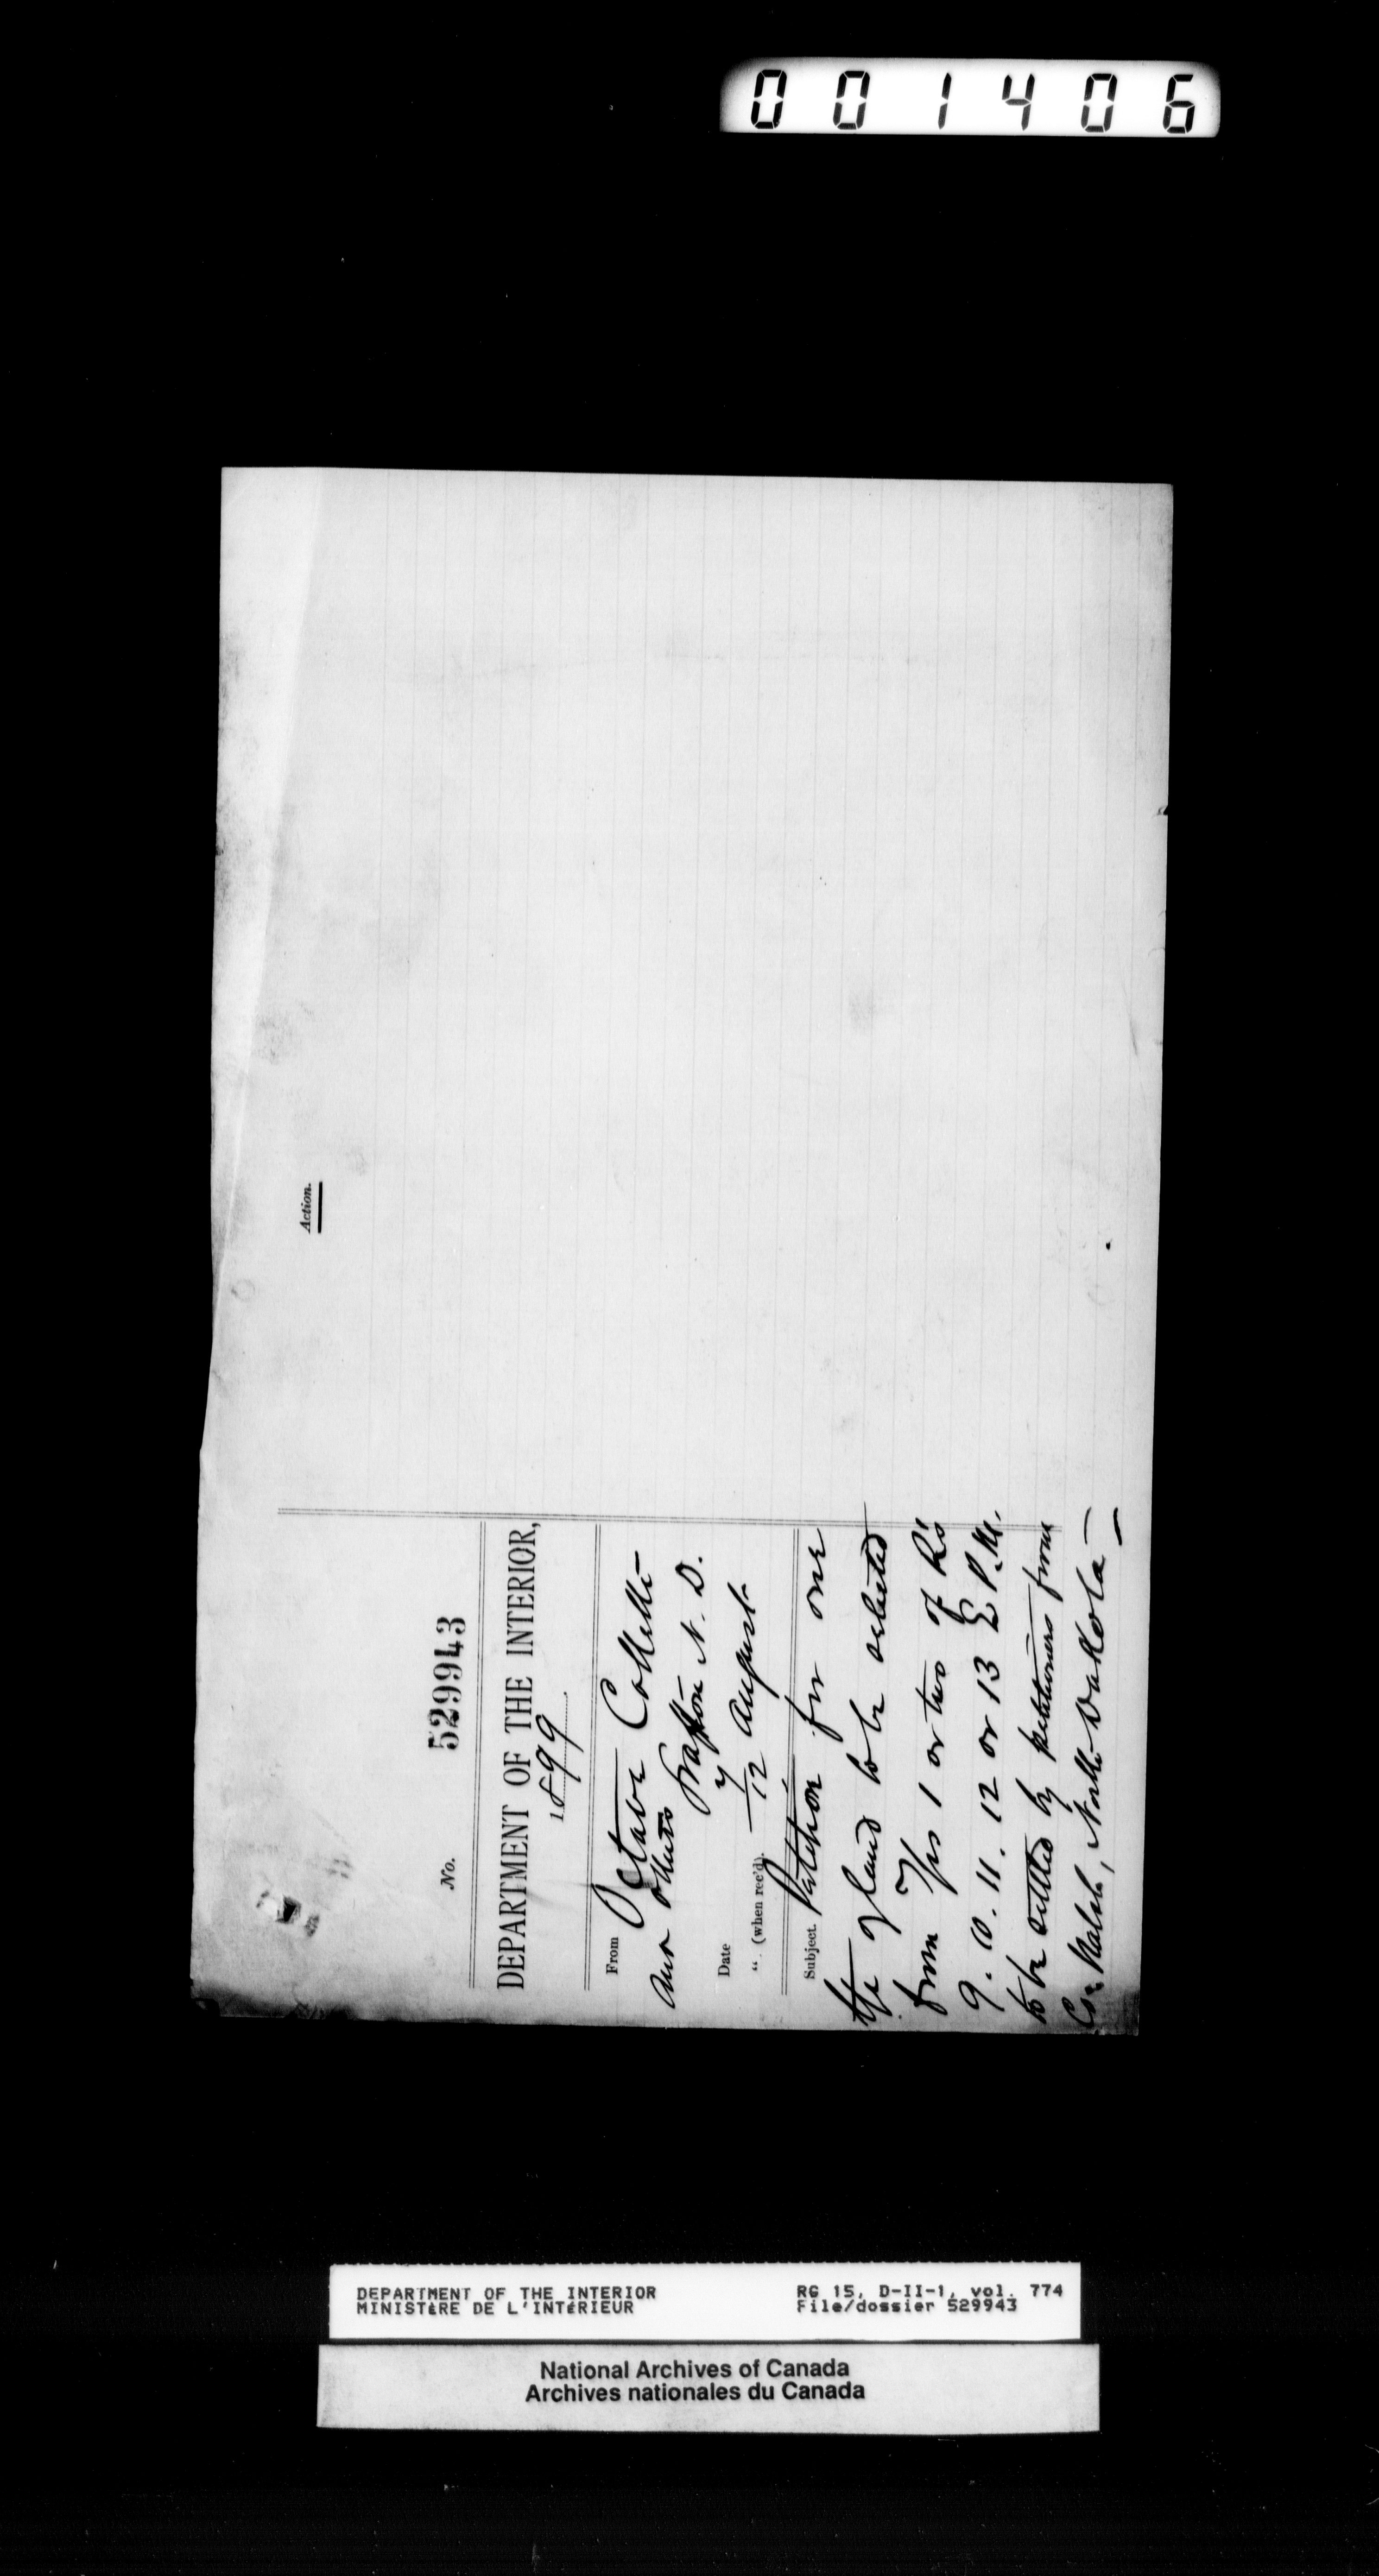 001406
Action.
No. 529943
DEPARTMENT OF THE INTERIOR,
1899
From Octave Collette
and others
Grafton N. D.
Date 7 August
" (when rec'd). 12
Subject. Petition for one
tp of land to be selected
from Tps 1 or two of R's
9. 10. 11. 12 or 13 E P.M.
to be settled by petitioners from
Co. Walsh, North Dakota —
DEPARTMENT OF THE INTERIOR
MINISTÈRE DE L'INTÉRIEUR
RG 15, D-II-1, vol. 774
File/dossier 529943
National Archives of Canada
Archives nationales du Canada